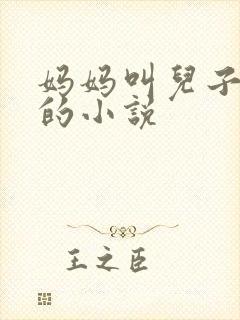 妈妈叫兒子
的小説
王之臣